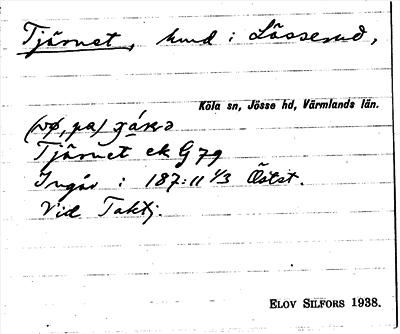 Tjärnet, hmd i Lässerud,
Köla sn, Jösse hd, Värmlands län.
(vø, pa)
Tjärnet ek G 79
Ingår i 187:11 1/3 Östst.
Vid Taktj.
ELOV SILFORS 1938.